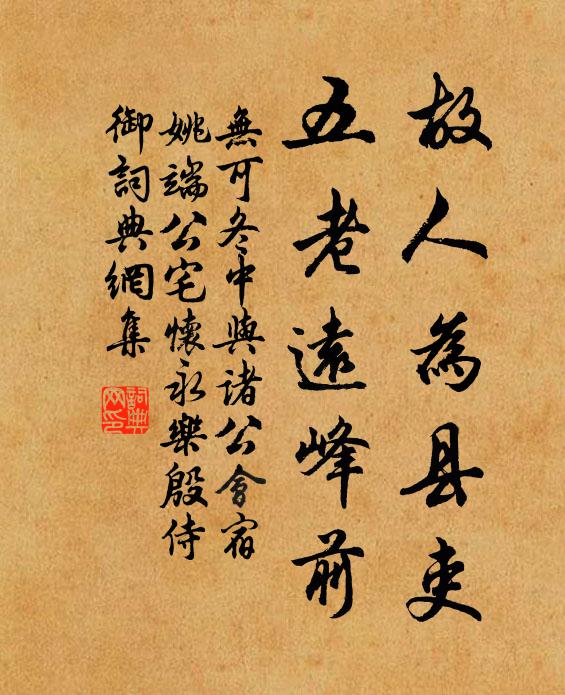 故人為县吏
五老遠峰前
無可冬中與諸公會宿
姚端公宅懷永樂殷侍
御詞典網集
詞典网印